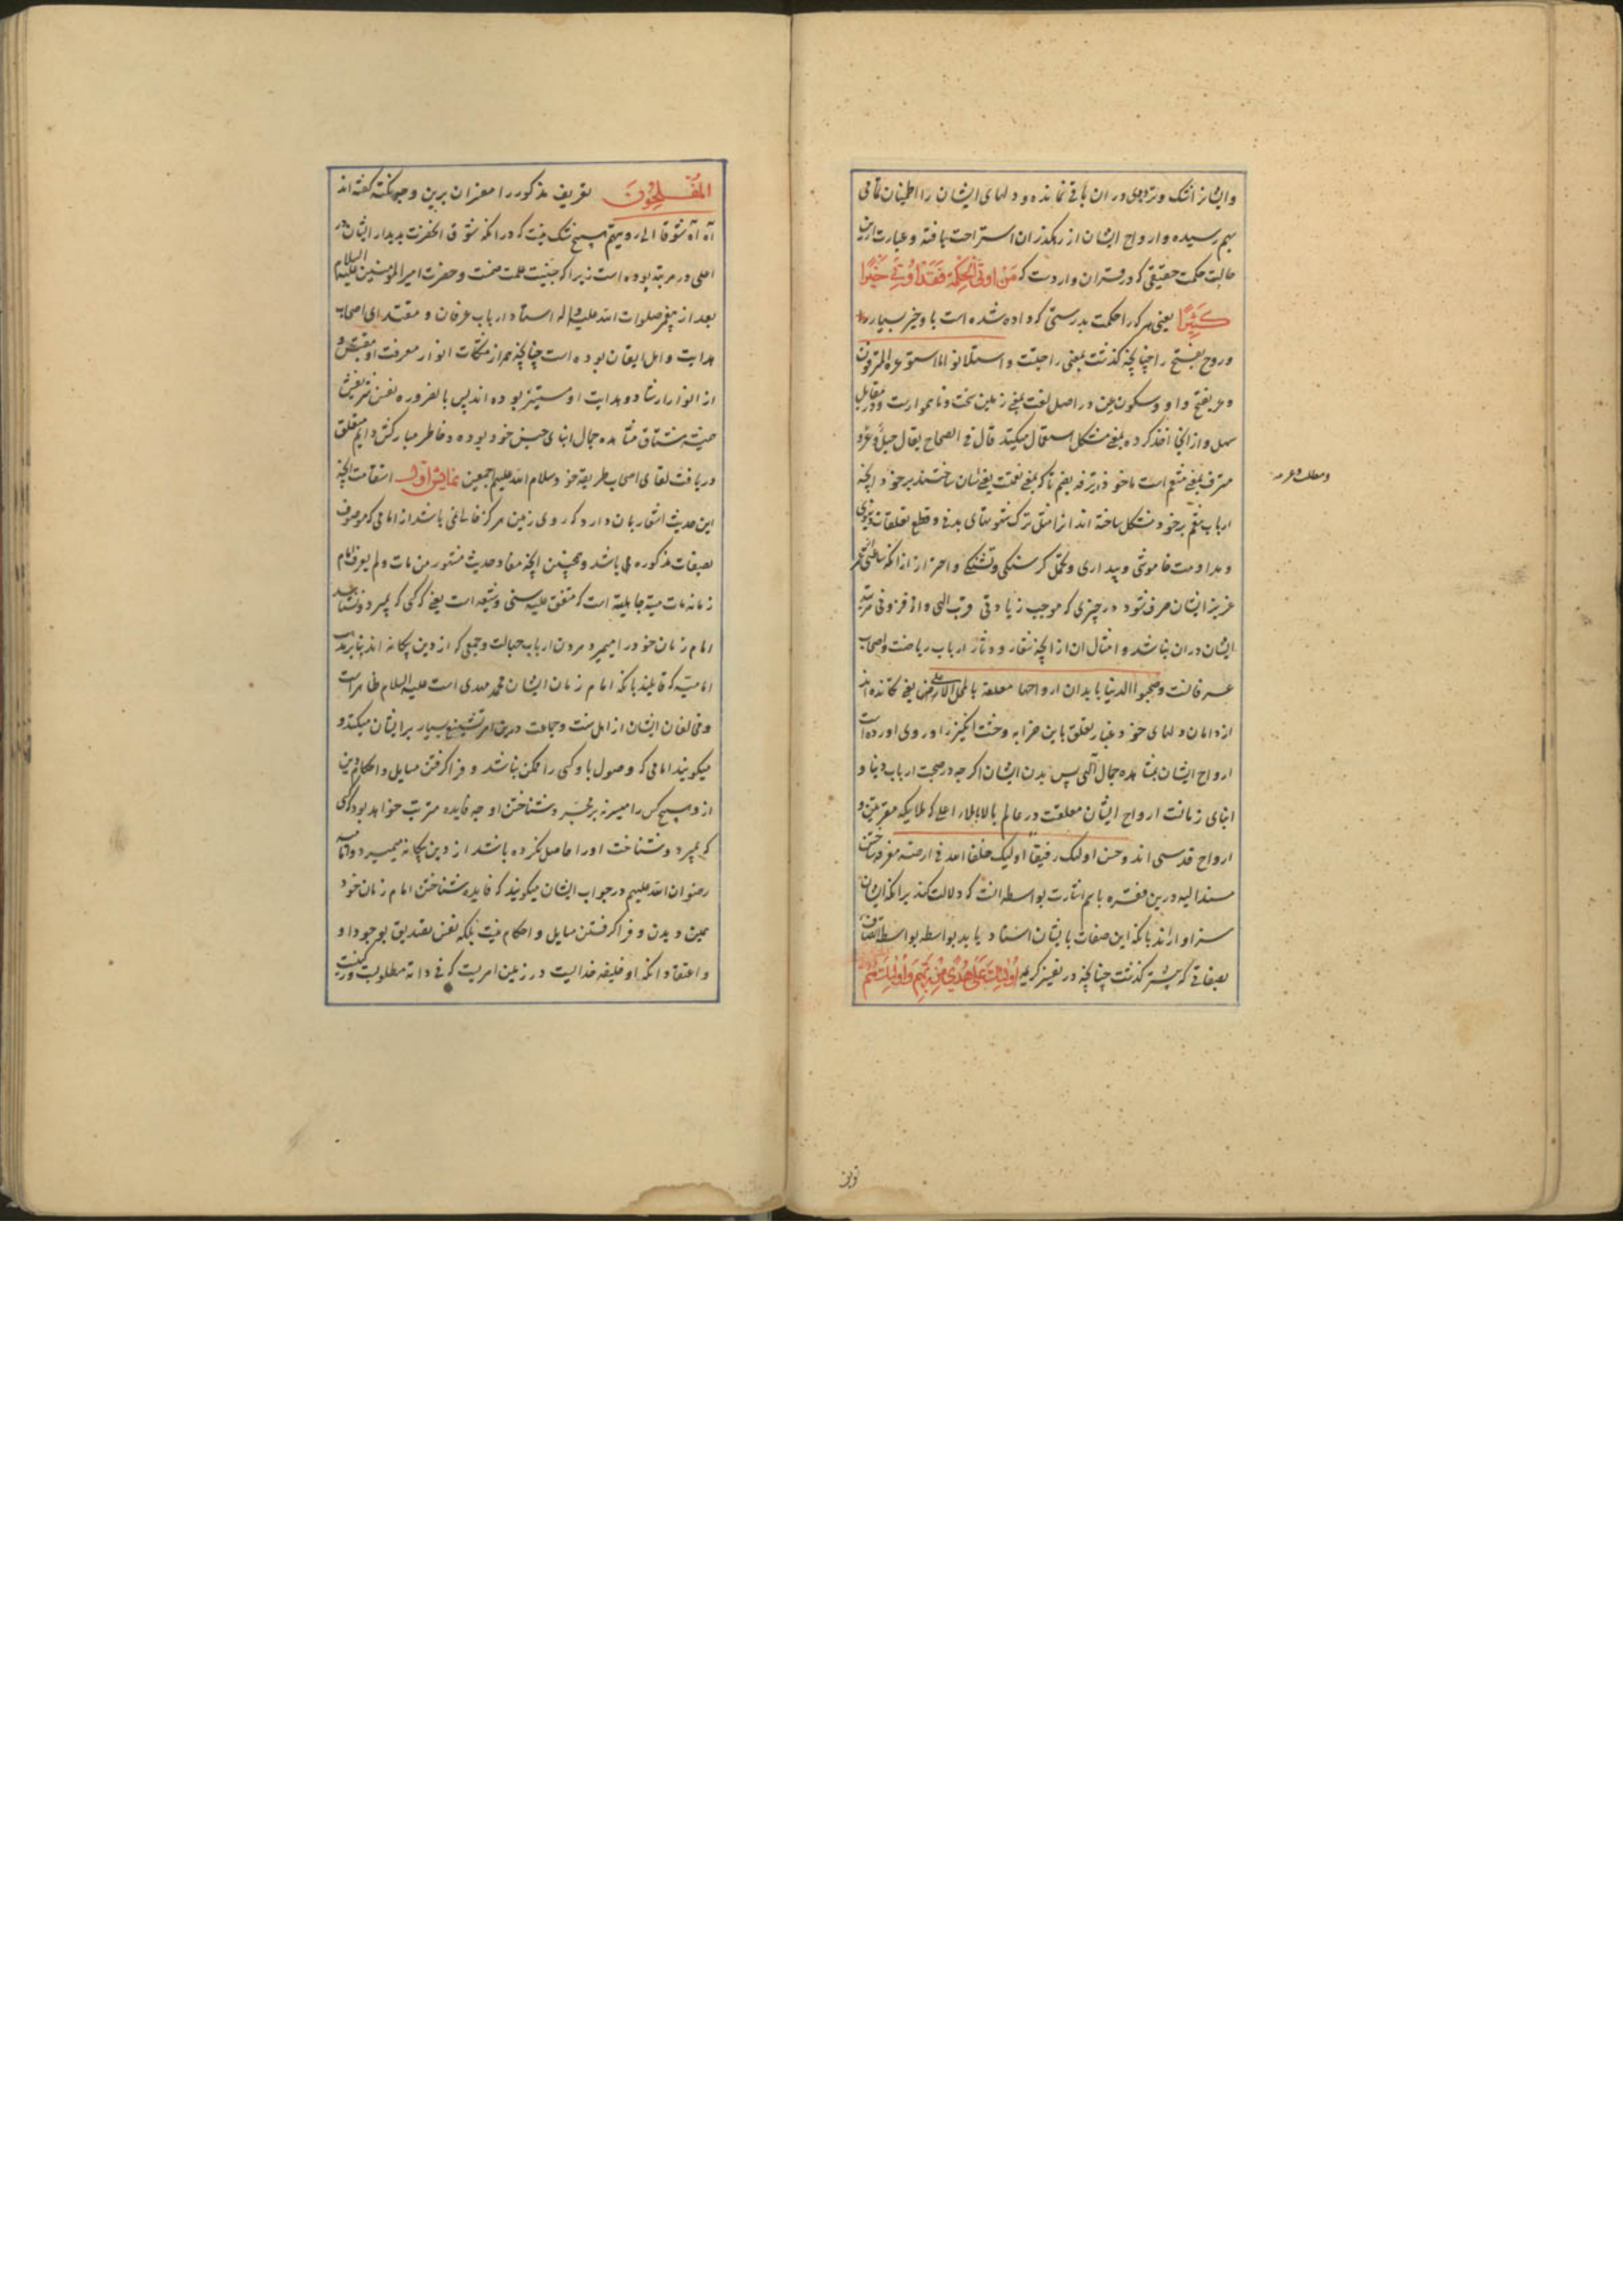 وایشانرا شک و تردیدی در ان باقی نمانده و دلهای ایشان را اطمینان تمامی
بهم رسیده و ارواح ایشان از رهکذر ان استراحت یافته و عبارت ازین
حالت حکمت حقیقی که در قران واردست که مَنْ اُوتِیَ الْحِکْمَةَ فَقَدْ اُوتِیَ خَیْرًا
کَثِیْرًا یعنی هر که را حکمت بدرستی که داده شده است باو خیر بسیار
و روح بفتح را چنانچه کذشت بمعنی راحتت و استلانوا ما استوعره المترفون
وعر بفتح واو و سکون عین در اصل لغت بمعنی زمین سخت و ناهموارست و در مقابل
سهل و از انجا اخذ کرده بمعنی مشکل استعمال میکنند قال فی الصحاح یقال جبل وعر و
ومطلب وعر منه
مترف بمعنی متنعم است ماخوذ از ترفه بضم تا که بمعنی نعمت یعنی اسان ساختند بر خود انچه
ارباب تنعم بر خود مشکل ساخته اند از امثال ترک شهوتهای بدنی و قطع تعلقات دنیوی
و مداومت خاموشی و بیداری و تحمل کرسنکی و تشنکی و احتراز از انکه ساعتی از عمر
عزیز ایشان صرف شود در چیزی که موجب زیادتی قرب الهی و افزونی مرتبه
ایشان دران نباشد و امثال ان از انچه شعار و دثار ارباب ریاضت و اصحاب
عرفانست وصحبوا الدنیا بابدان ارواحها معلقة بالمحل الاعلی یعنی تکانده اند
از دامان دلهای خود غبار تعلق باین خرابه وحشت انکیز را و روی اورده است
ارواح ایشان بمشاهده جمال الهی پس بدن ایشان اکرچه در صحبت ارباب دنیا و
ابنای زمانست ارواح ایشان معلقست در عالم بالا بملاء اعلی که ملایکه مقربین و
ارواح قدسی اند وحسن اولئک رفیقا اولئک خلفاء الله فی ارضه معرفه ساختن
مسند الیه درین فقره باسم اشارت بواسطه انست که دلالت کند برانکه ایشان
سزاوارند بانکه این صفات بایشان اسناد یابد بواسطه بواسطه اتصاف
بصفاتی که پیشتر کذشت چنانچه در تفسیر کریمه اُولٰئِکَ عَلیٰ هُدًی مِنْ رَبِّهِمْ وَاُولٰئِکَ هُمُ
الْمُفْلِحُونَ تعریف مذکور را مفسران برین وجه نکته کفته اند
آه آه شوقا الی رویتهم هیچ شک نیست که در انکه شوق انحضرت بدیدار ایشان در
اعلی درجه مرتبه بوده است زیرا که جنسیت علت ضمست و حضرت امیر المؤمنین علیه السلام
بعد از پیغمبر صلوات الله علیه واله استاد ارباب عرفان و مقتدای اصحاب
هدایت و اهل ایقان بوده است چنانچه همه از مشکات انوار معرفت او مقتبس و
از انوار ارشاد و هدایت او مستنیر بوده اند پس بالضروره نفس شریفش
همیشه مشتاق مشاهده جمال ابنای جنس خود بوده و خاطر مبارکش دایم متعلق
دریافت لقای اصحاب طریقه خود وسلام الله علیهم اجمعین نمایش اول استقامت انچه
این حدیث اشعار بان دارد که روی زمین هرکز خالی نمی باشد از امامی که موصوف
بصفات مذکوره می باشد و همچنین انچه مفاد حدیث مشهور من مات ولم یعرف امام
زمانه مات میتة جاهلیة است که متفق علیه سنی و شیعه است یعنی که کسی که بمیرد و نشناسد
امام زمان خود را میمیرد مردن ارباب جهالت و جمعی که از دین بیکانه اند بنا بر مذهب
امامیه که قایلند بانکه امام زمان ایشان محمد مهدی است علیه السلام ظاهر است
و مخالفان ایشان از اهل سنت و جماعت درین امر تشنیع بسیار بر ایشان میکنند و
میکویند امامی که وصول باو کسی را ممکن نباشد و فرا کرفتن مسایل و احکام دین
از و هیچ کس را میسر نه بر مجرد شناختن او چه فایده مترتب خواهد بود که کسی
که بمیرد و شناخت او را حاصل نکرده باشد از دین بیکانه میمیرد و امامیه
رضوان الله علیهم در جواب ایشان میکویند که فایده شناختن امام زمان خود
همین دیدن و فرا کرفتن مسایل و احکام نیست بلکه نفس تصدیق بوجود او
و اعتقاد انکه او خلیفه خدایست در زمین امریست که فی ذاته مطلوبست و